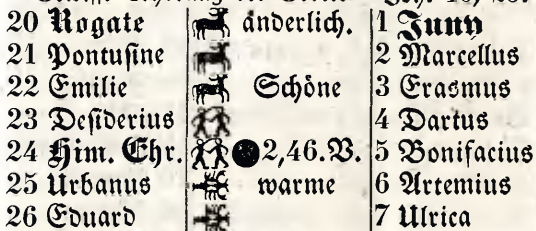 20 Rogate änderlich. 1 Juny
21 Pontusine 2 Marcellus
22 Emilie Schöne 3 Erasmus
23 Desiderius 4 Dartus
24 Him. Chr. 2,46.V. 5 Bonifacius
25 Urbanus warme 6 Artemius
26 Eduard 7 Ulrica